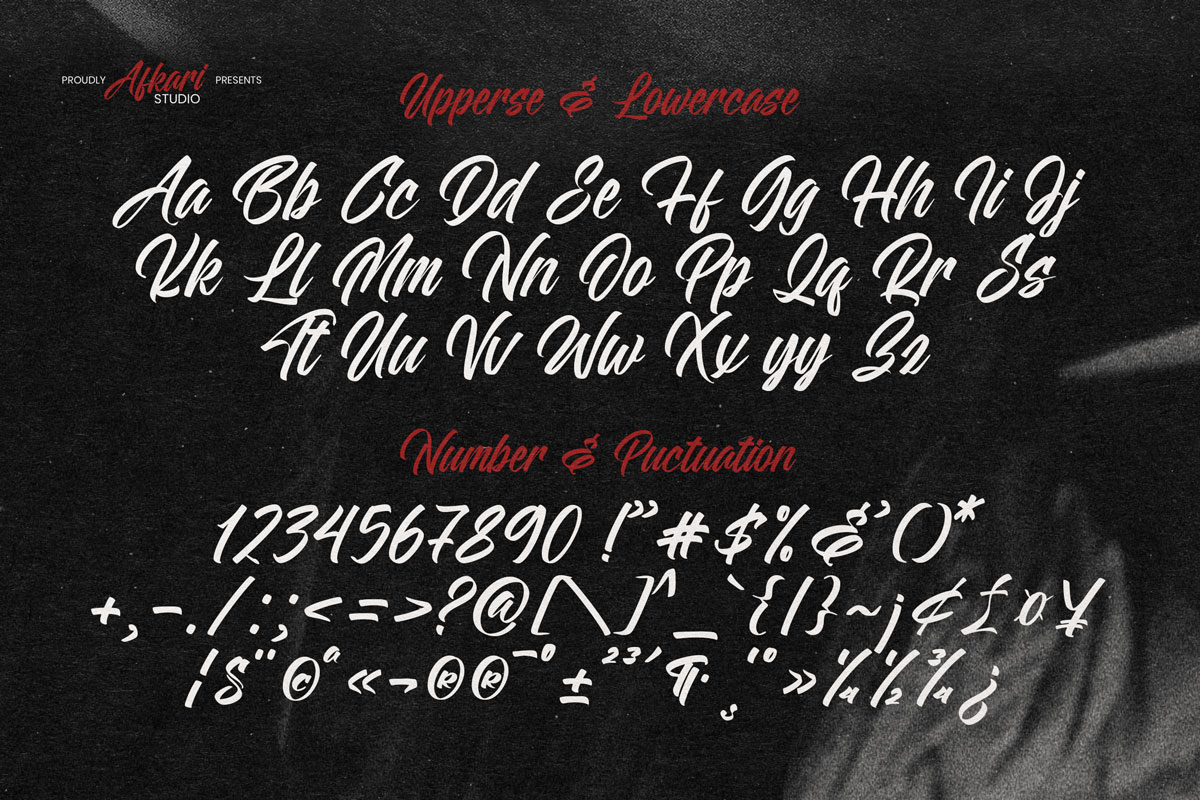 PROUDLY Afkari PRESENTS
STUDIO
Upperse & Lowercase
Aa Bb Cc Dd Ee Ff Gg Hh Ii Jj
Kk Ll Mm Nn Oo Pp Qq Rr Ss
Tt Uu Vv Ww Xx yy Zz
Number & Puctuation
1234567890 !”#$%&’()*
+,-./:;<=>?@[\]^_`{|}~¡¢£¤¥
¦§¨©ª«¬®®¯º±²³´¶·¸¹º»¼½¾¿